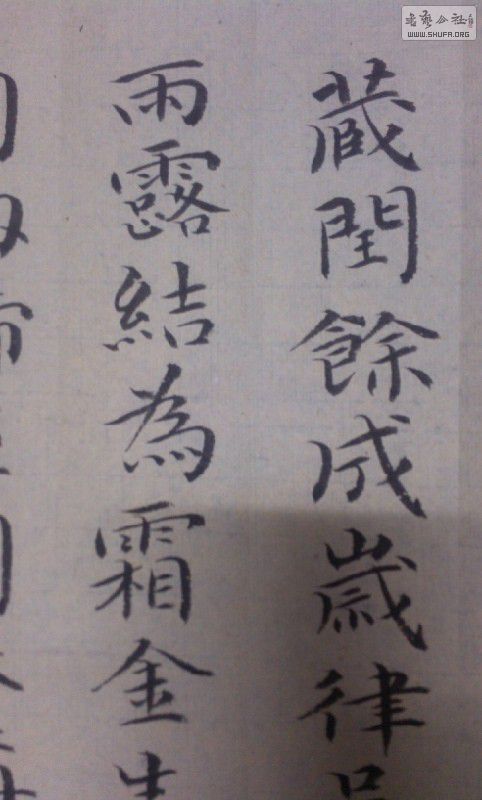 書藝公社
WWW.SHUFA.ORG
藏閏餘成歲律
雨露結為霜金生